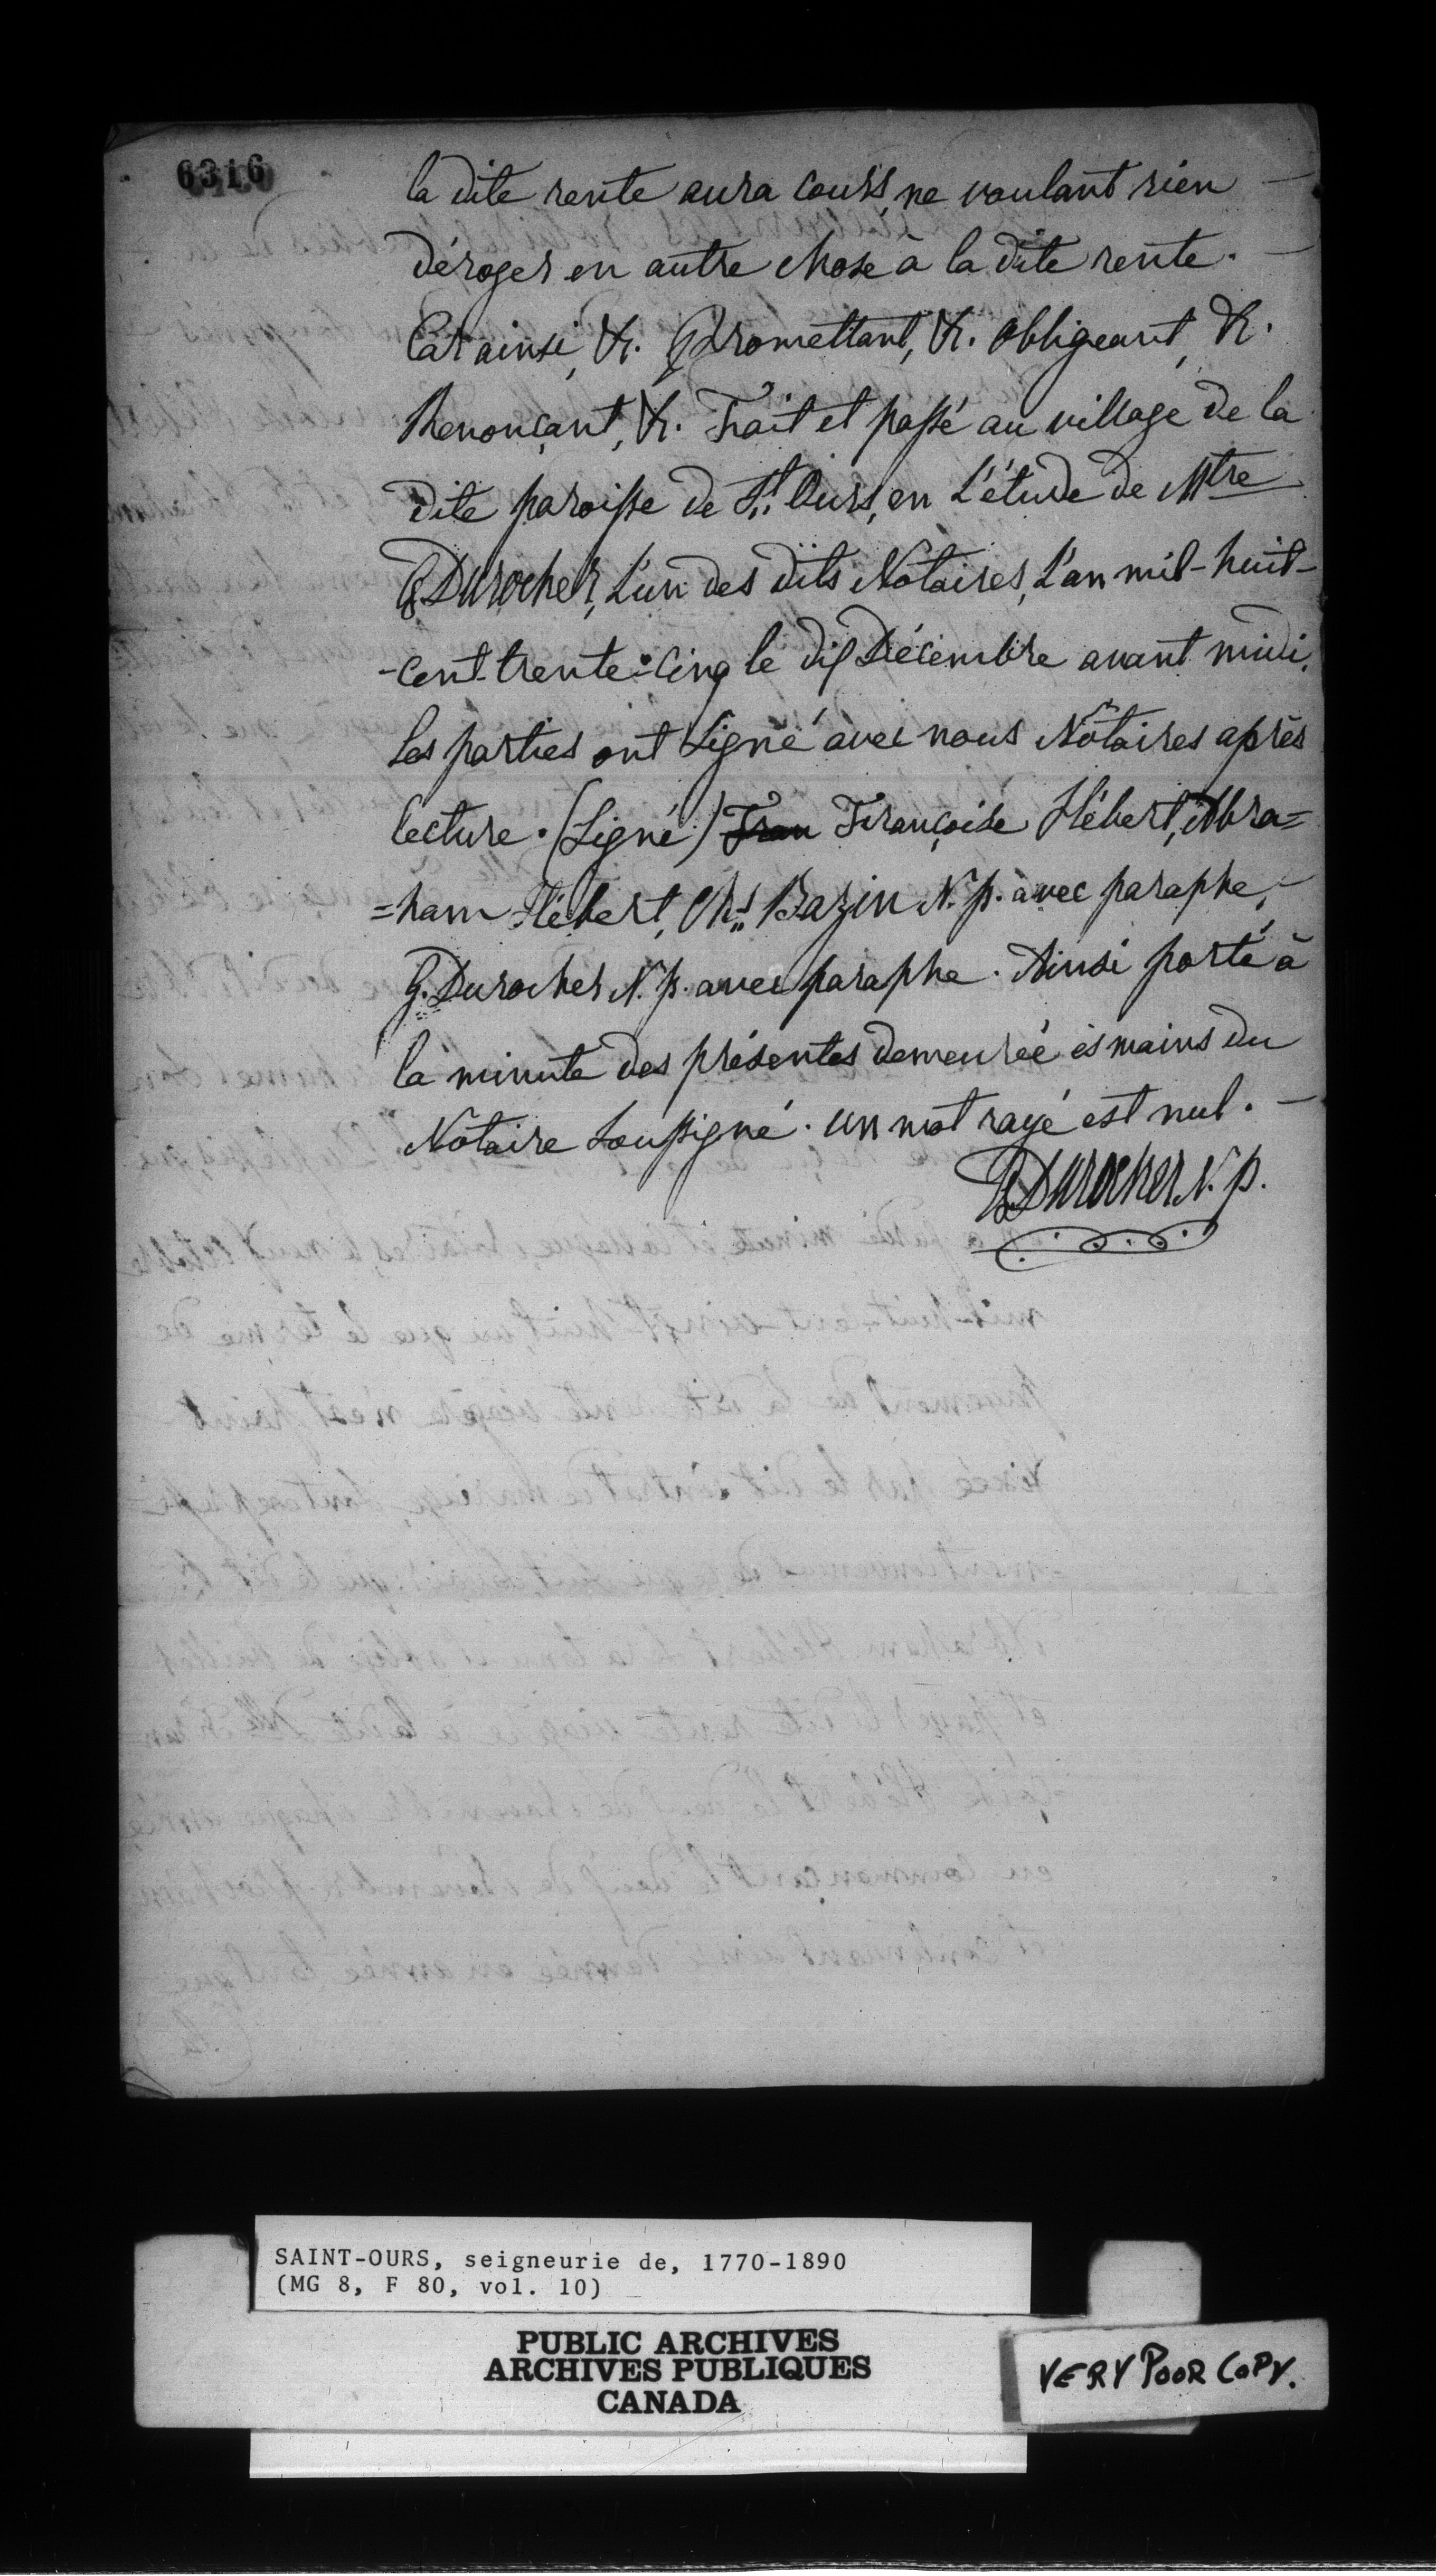 6316
la dite rente aura cours, ne voulant rien
déroger en autre chose à la dite rente.
Car ainsi, &. Promettant, &. obligeant, &.
Renonçant, &. Fait et passé au village de la
dite paroisse de St. Ours, en L'étude de Mtre
G. Durocher, L'un des dits Notaires, L'an mil-huit-
-cent-trente-cinq le dix Décembre avant midi.
Les parties ont Signé avec nous Notaires après
lecture. (Signé) Fran Françoise Hébert, Abra=
=ham Hébert, Chs. Bazin N. p. avec paraphe,
G. Durocher N. p. avec paraphe. Ainsi porté à
la minute des présentes demeurée ès mains du
Notaire Soussigné. un mot rayé est nul.
G Durocher N. p.
SAINT-OURS, seigneurie de, 1770-1890
(MG 8, F 80, vol. 10)
PUBLIC ARCHIVES
ARCHIVES PUBLIQUES
CANADA
VERY POOR COPY.